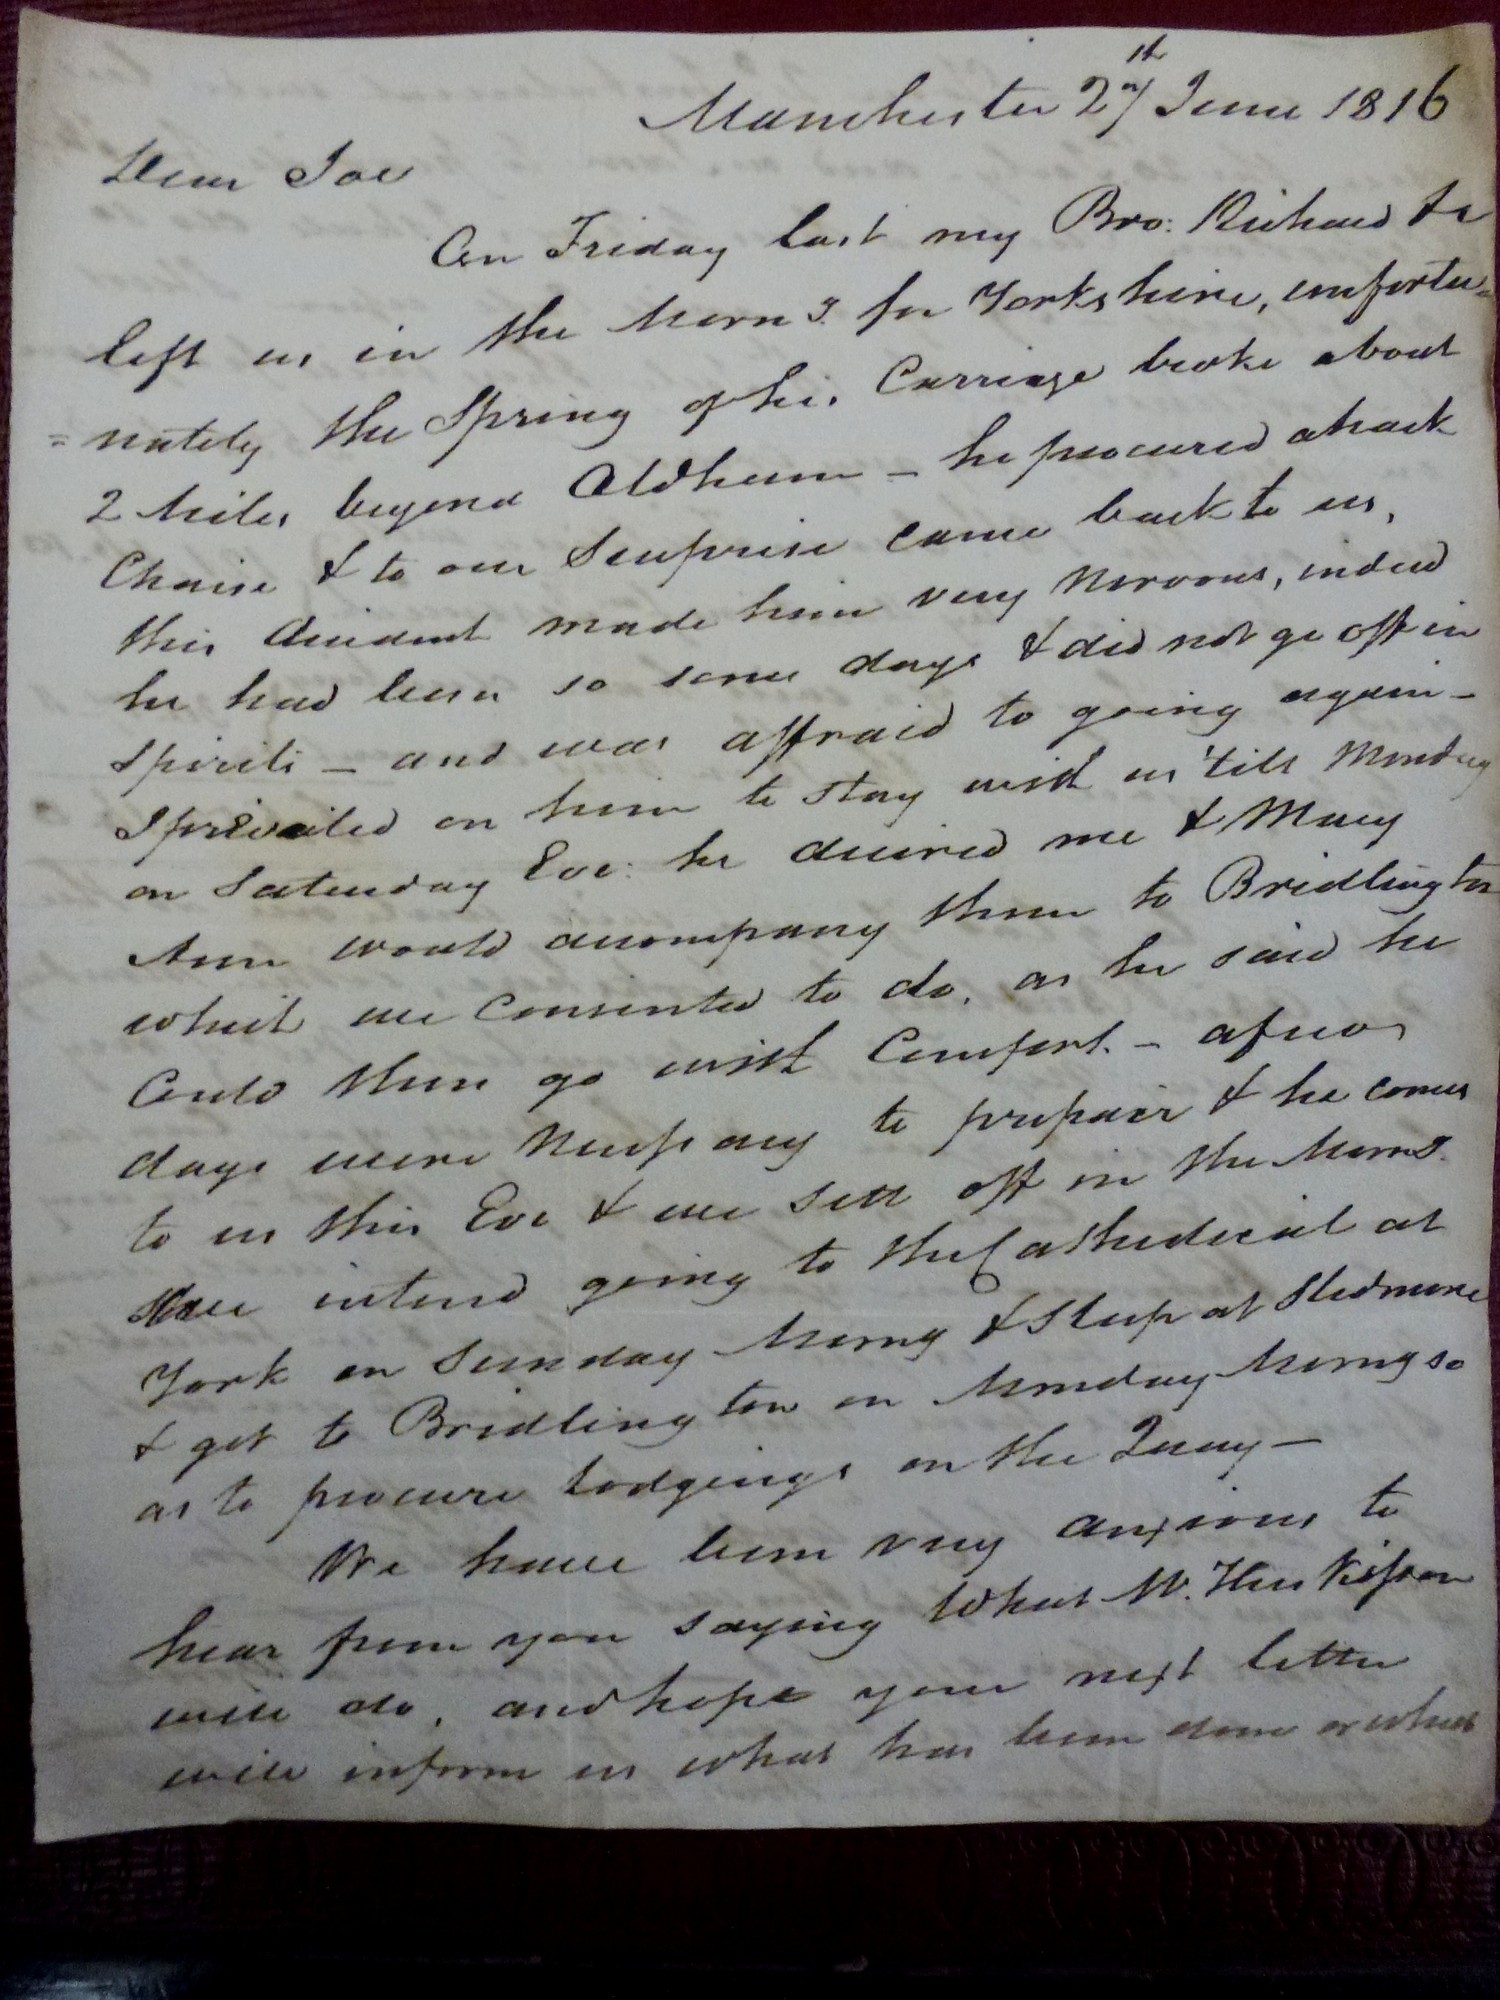 Manchester 27th June 1816
Dear Joe
On Friday last my Bro: Richard &c
left us in the Morng. for Yorkshire, unfortu=
=nately the Spring of his Carriage broke about
2 Miles beyond Oldham – he procured a hack
Chaise & to our Surprise came back to us,
this Accident made him very Nervous, indeed
he had been so some days & did not go off in
Spirits – and was affraid to going again –
I prevailed on him to stay with us 'till Monday
on Saturday Eve: he desired me & Mary
Ann would accompany them to Bridlington
which we Consented to do, as he said he
Could then go with Comfort. – a few
days were Necessary to prepair & he comes
to us this Eve & we sett off in the Morng.
We intend going to the Cathedreal at
York on Sunday Morng & Sleep at Sledmere
& get to Bridlington on Monday Morng so
as to procure Lodgings on the Quay –
We have been very anxious to
hear from you saying What Mr. Huskisson
will do, and hope your next letter
will inform us what has been done or what